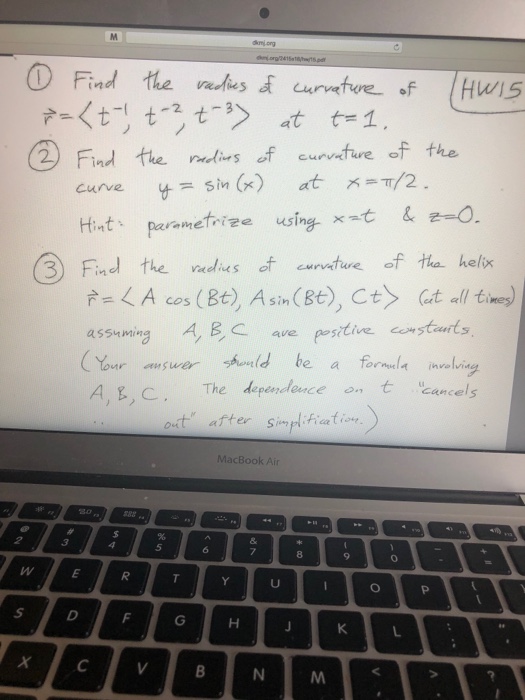 M
dkmj.org
① Find the radius of curvature of HW15
r⃗ = <t⁻¹, t⁻², t⁻³> at t=1.
② Find the radius of curvature of the
curve y = sin(x) at x=π/2.
Hint: parametrize using x=t & z=0.
③ Find the radius of curvature of the helix
r⃗ = <A cos(Bt), A sin(Bt), Ct> (at all times)
assuming A, B, C are positive constants.
(Your answer should be a formula involving
A, B, C. The dependence on t "cancels
out" after simplification.)
MacBook Air
@ 2 # 3 $ 4 % 5 ^ 6 & 7 * 8 ( 9 ) 0 - + =
W E R T Y U I O P
S D F G H J K L : ; "
X C V B N M < > ?